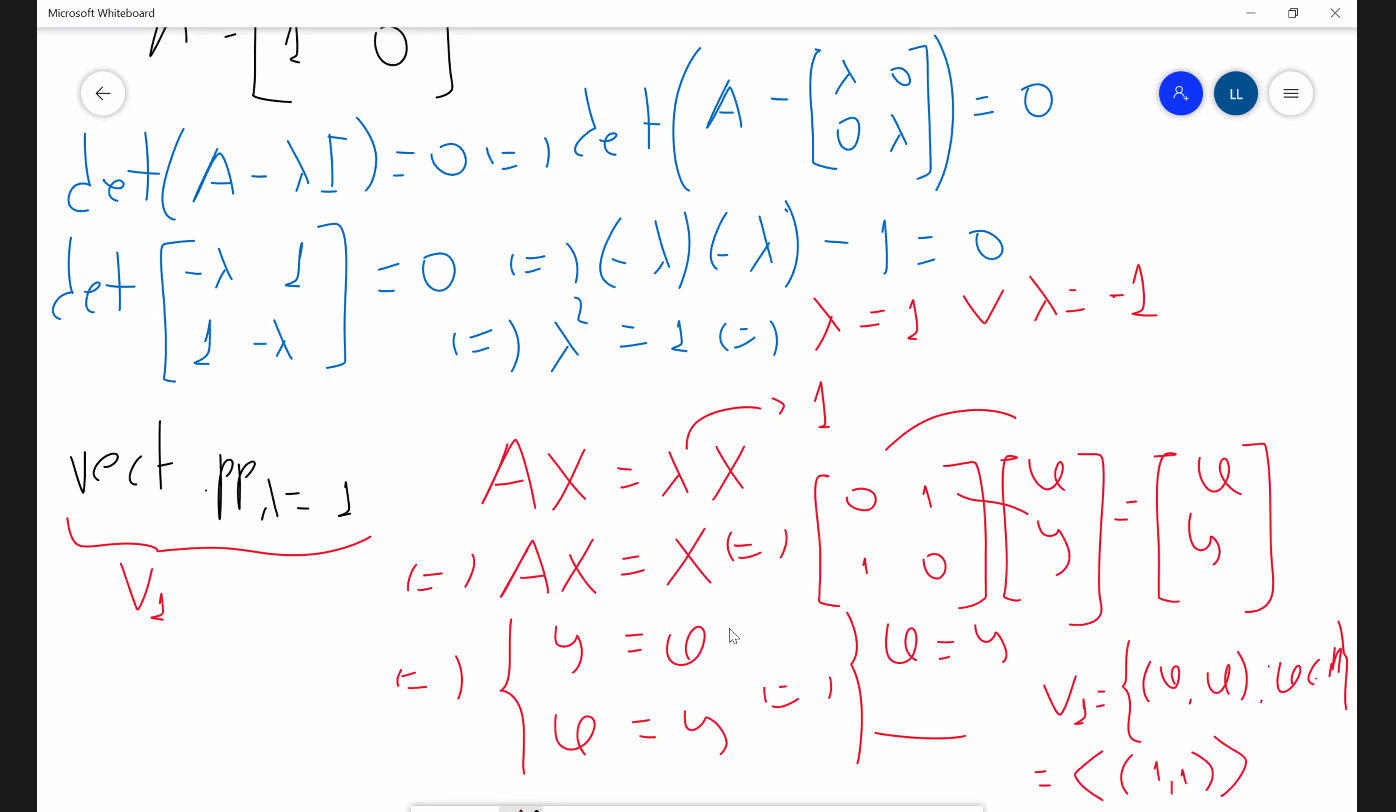 Microsoft Whiteboard
LL
A = [1 0]
det(A - λI) = 0 (=) det(A - [λ 0
0 λ]) = 0
det [-λ 1
1 -λ] = 0 (=) (-λ)(-λ) - 1 = 0
(=) λ² = 1 (=) λ = 1 ∨ λ = -1
vect pp, λ = 1
V₁
AX = λX → 1
(=) AX = X (=) [0 1
1 0] [φ
y] = [φ
y]
(=) { y = φ
φ = y (=) { φ = y
V₁ = {(φ, φ) : φ ∈ ℝ}
= <(1,1)>